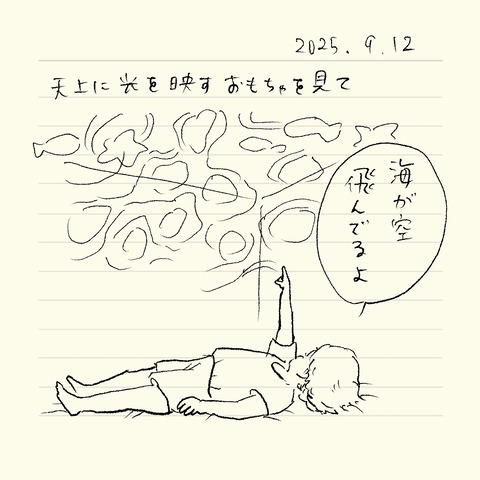 2025.9.12
天上に光を映すおもちゃを見て
海が空
飛んでるよ